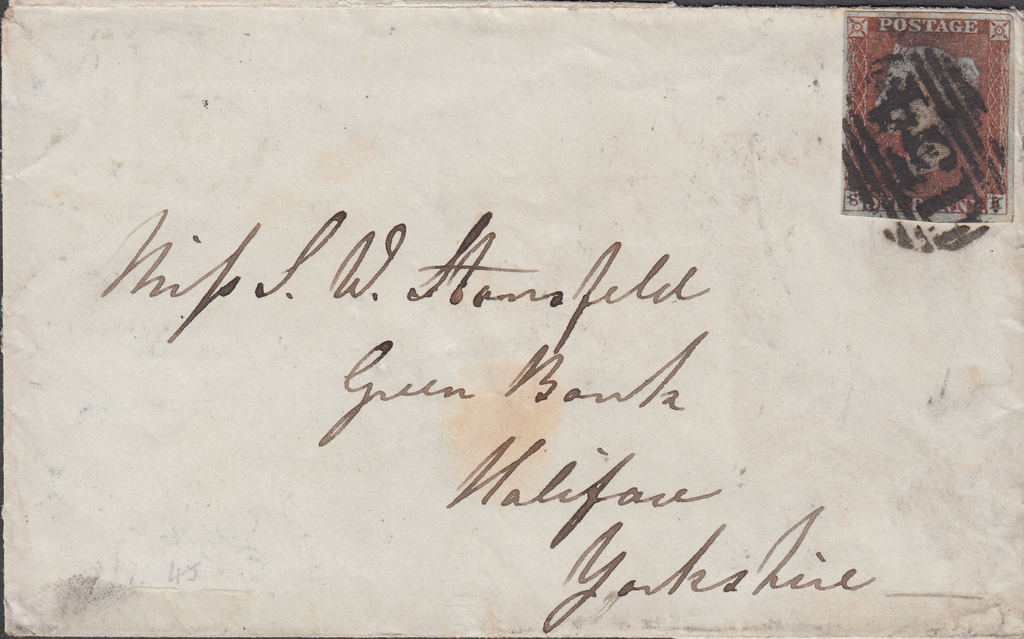 POSTAGE
S
Miss S. W. Stansfeld
Green Bank
Halifax
Yorkshire
45